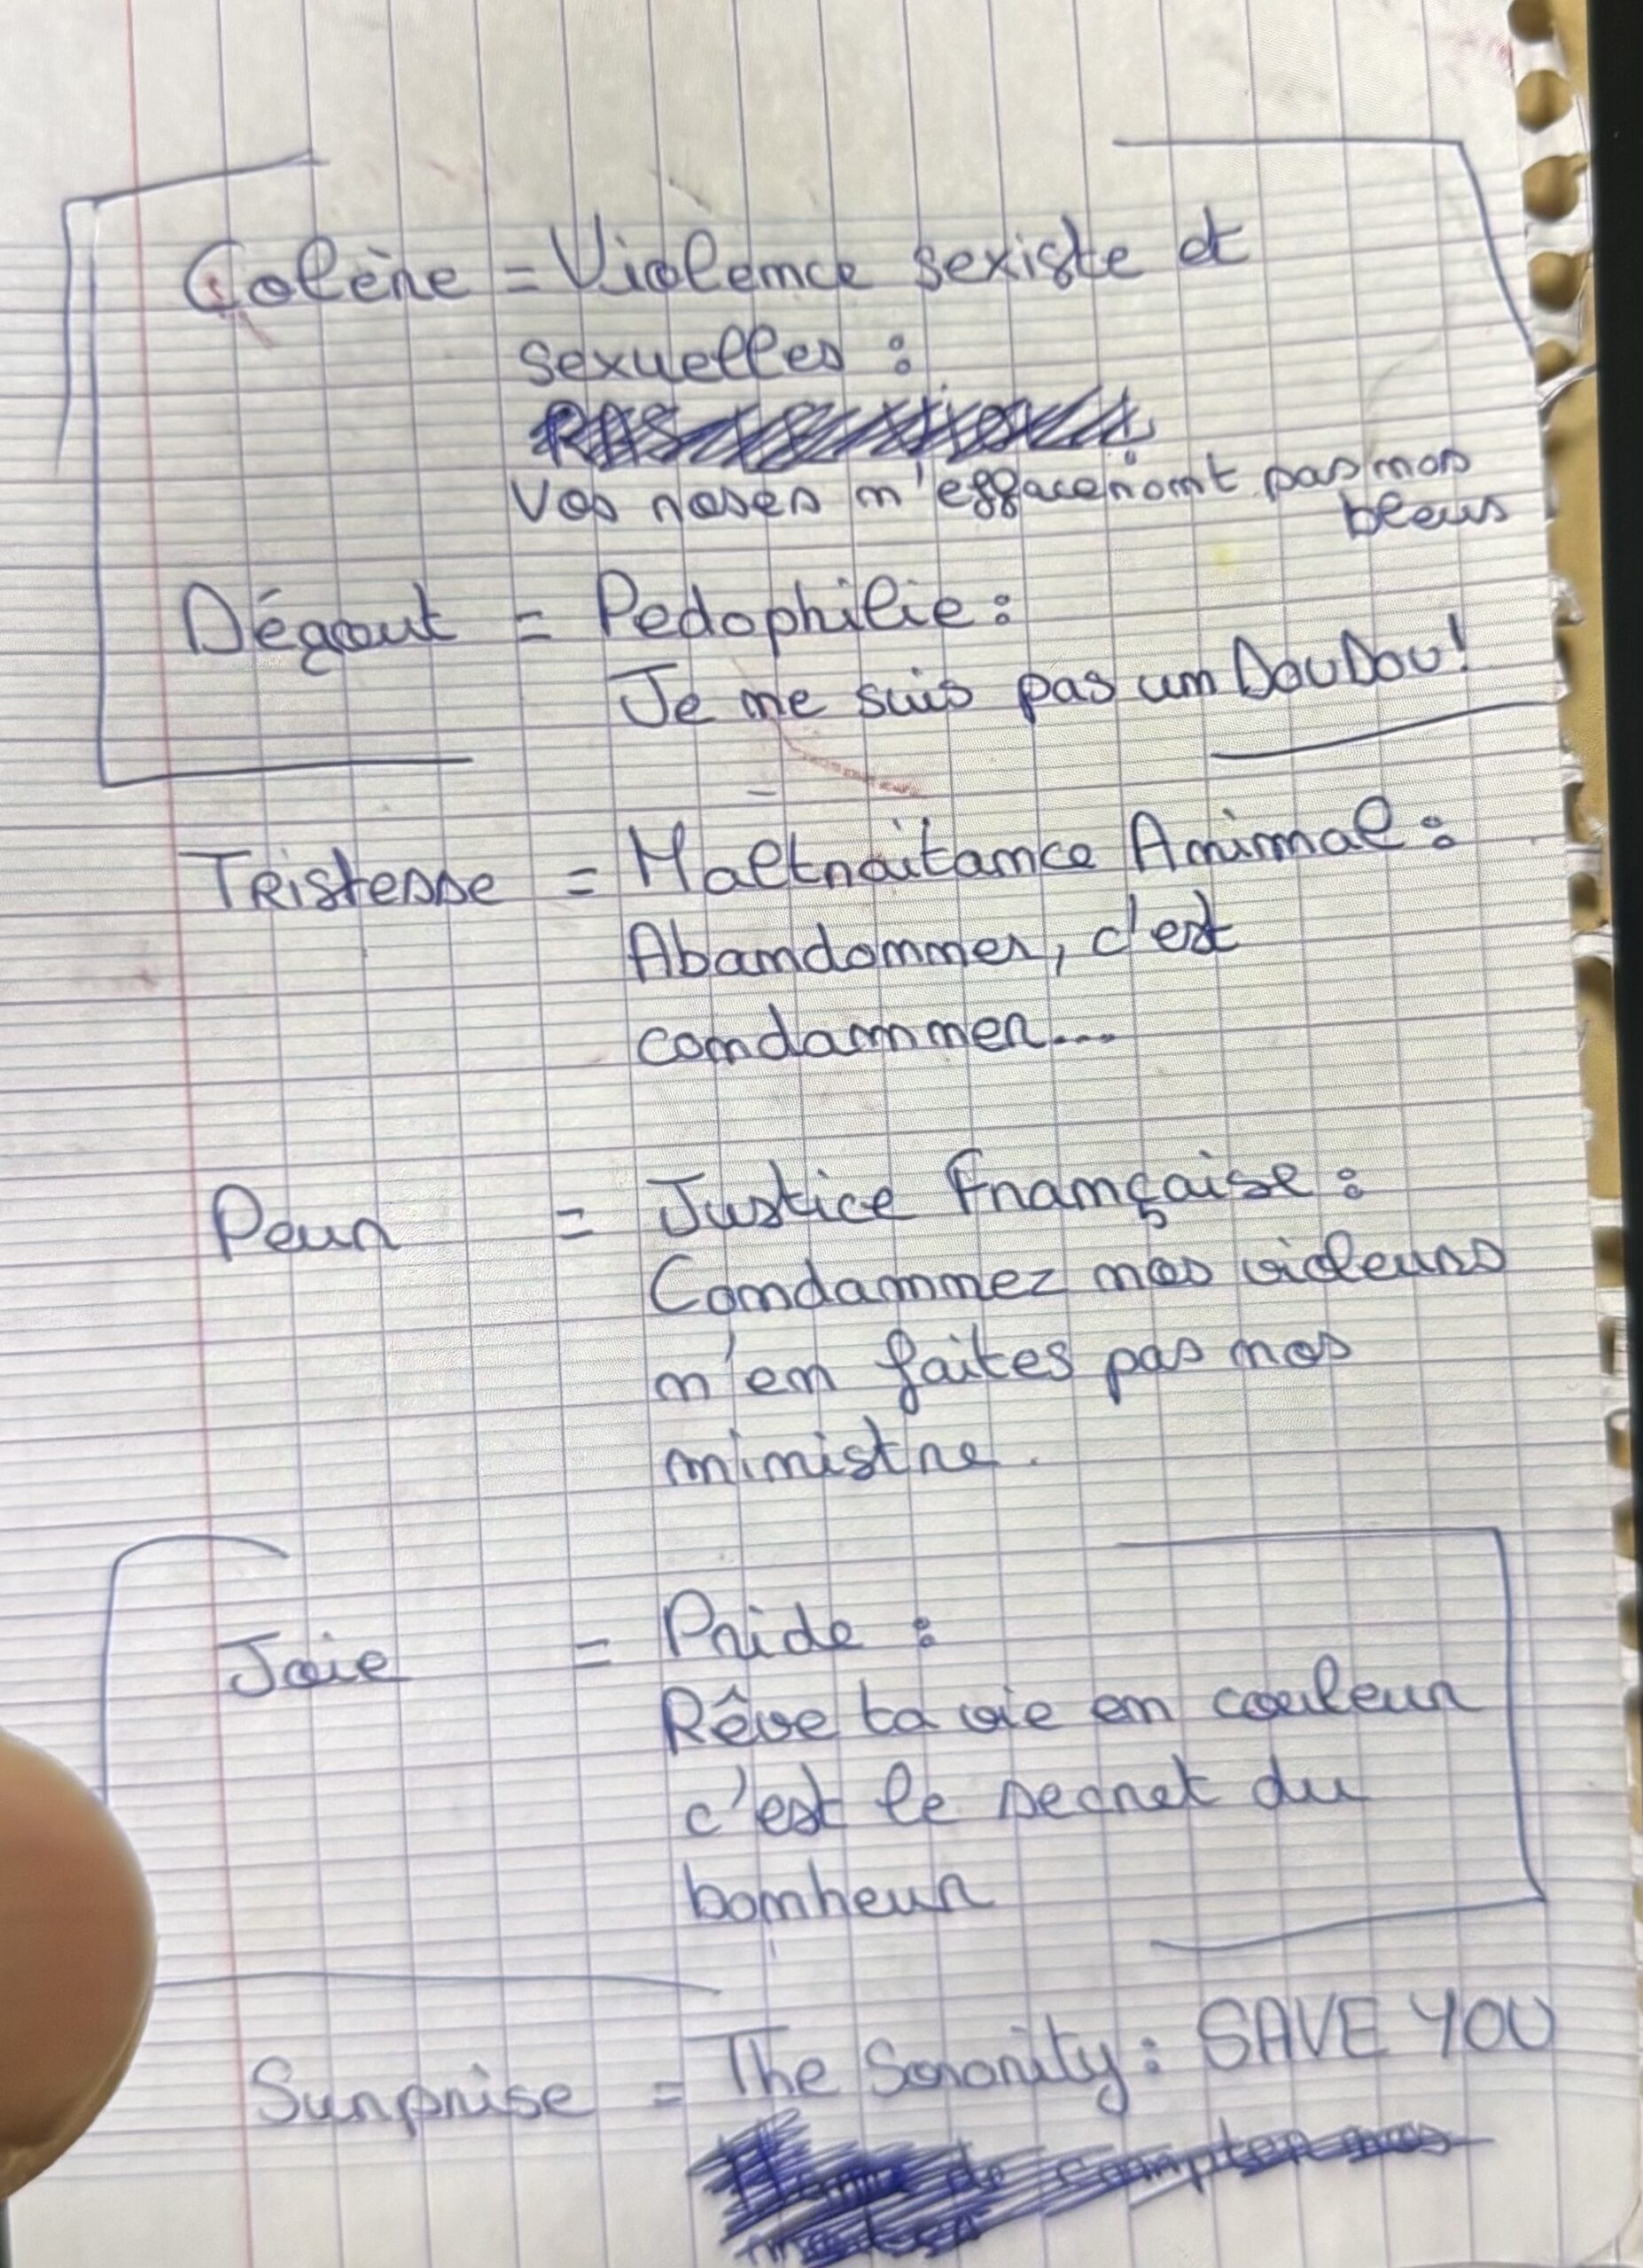 Colère = Violence sexiste et
sexuelles :
Vos roses n'effaceront pas nos
bleus
Dégout = Pedophilie :
Je ne suis pas un DOUDOU !
Tristesse = Maltraitance Animal :
Abandonner, c'est
condamner...
Peur = Justice Française :
Condamnez nos violeurs
n'en faites pas nos
ministre.
Joie = Pride :
Rêve ta vie en couleur
c'est le secret du
bonheur
Surprise = The Sorority : SAVE YOU
de compter nos